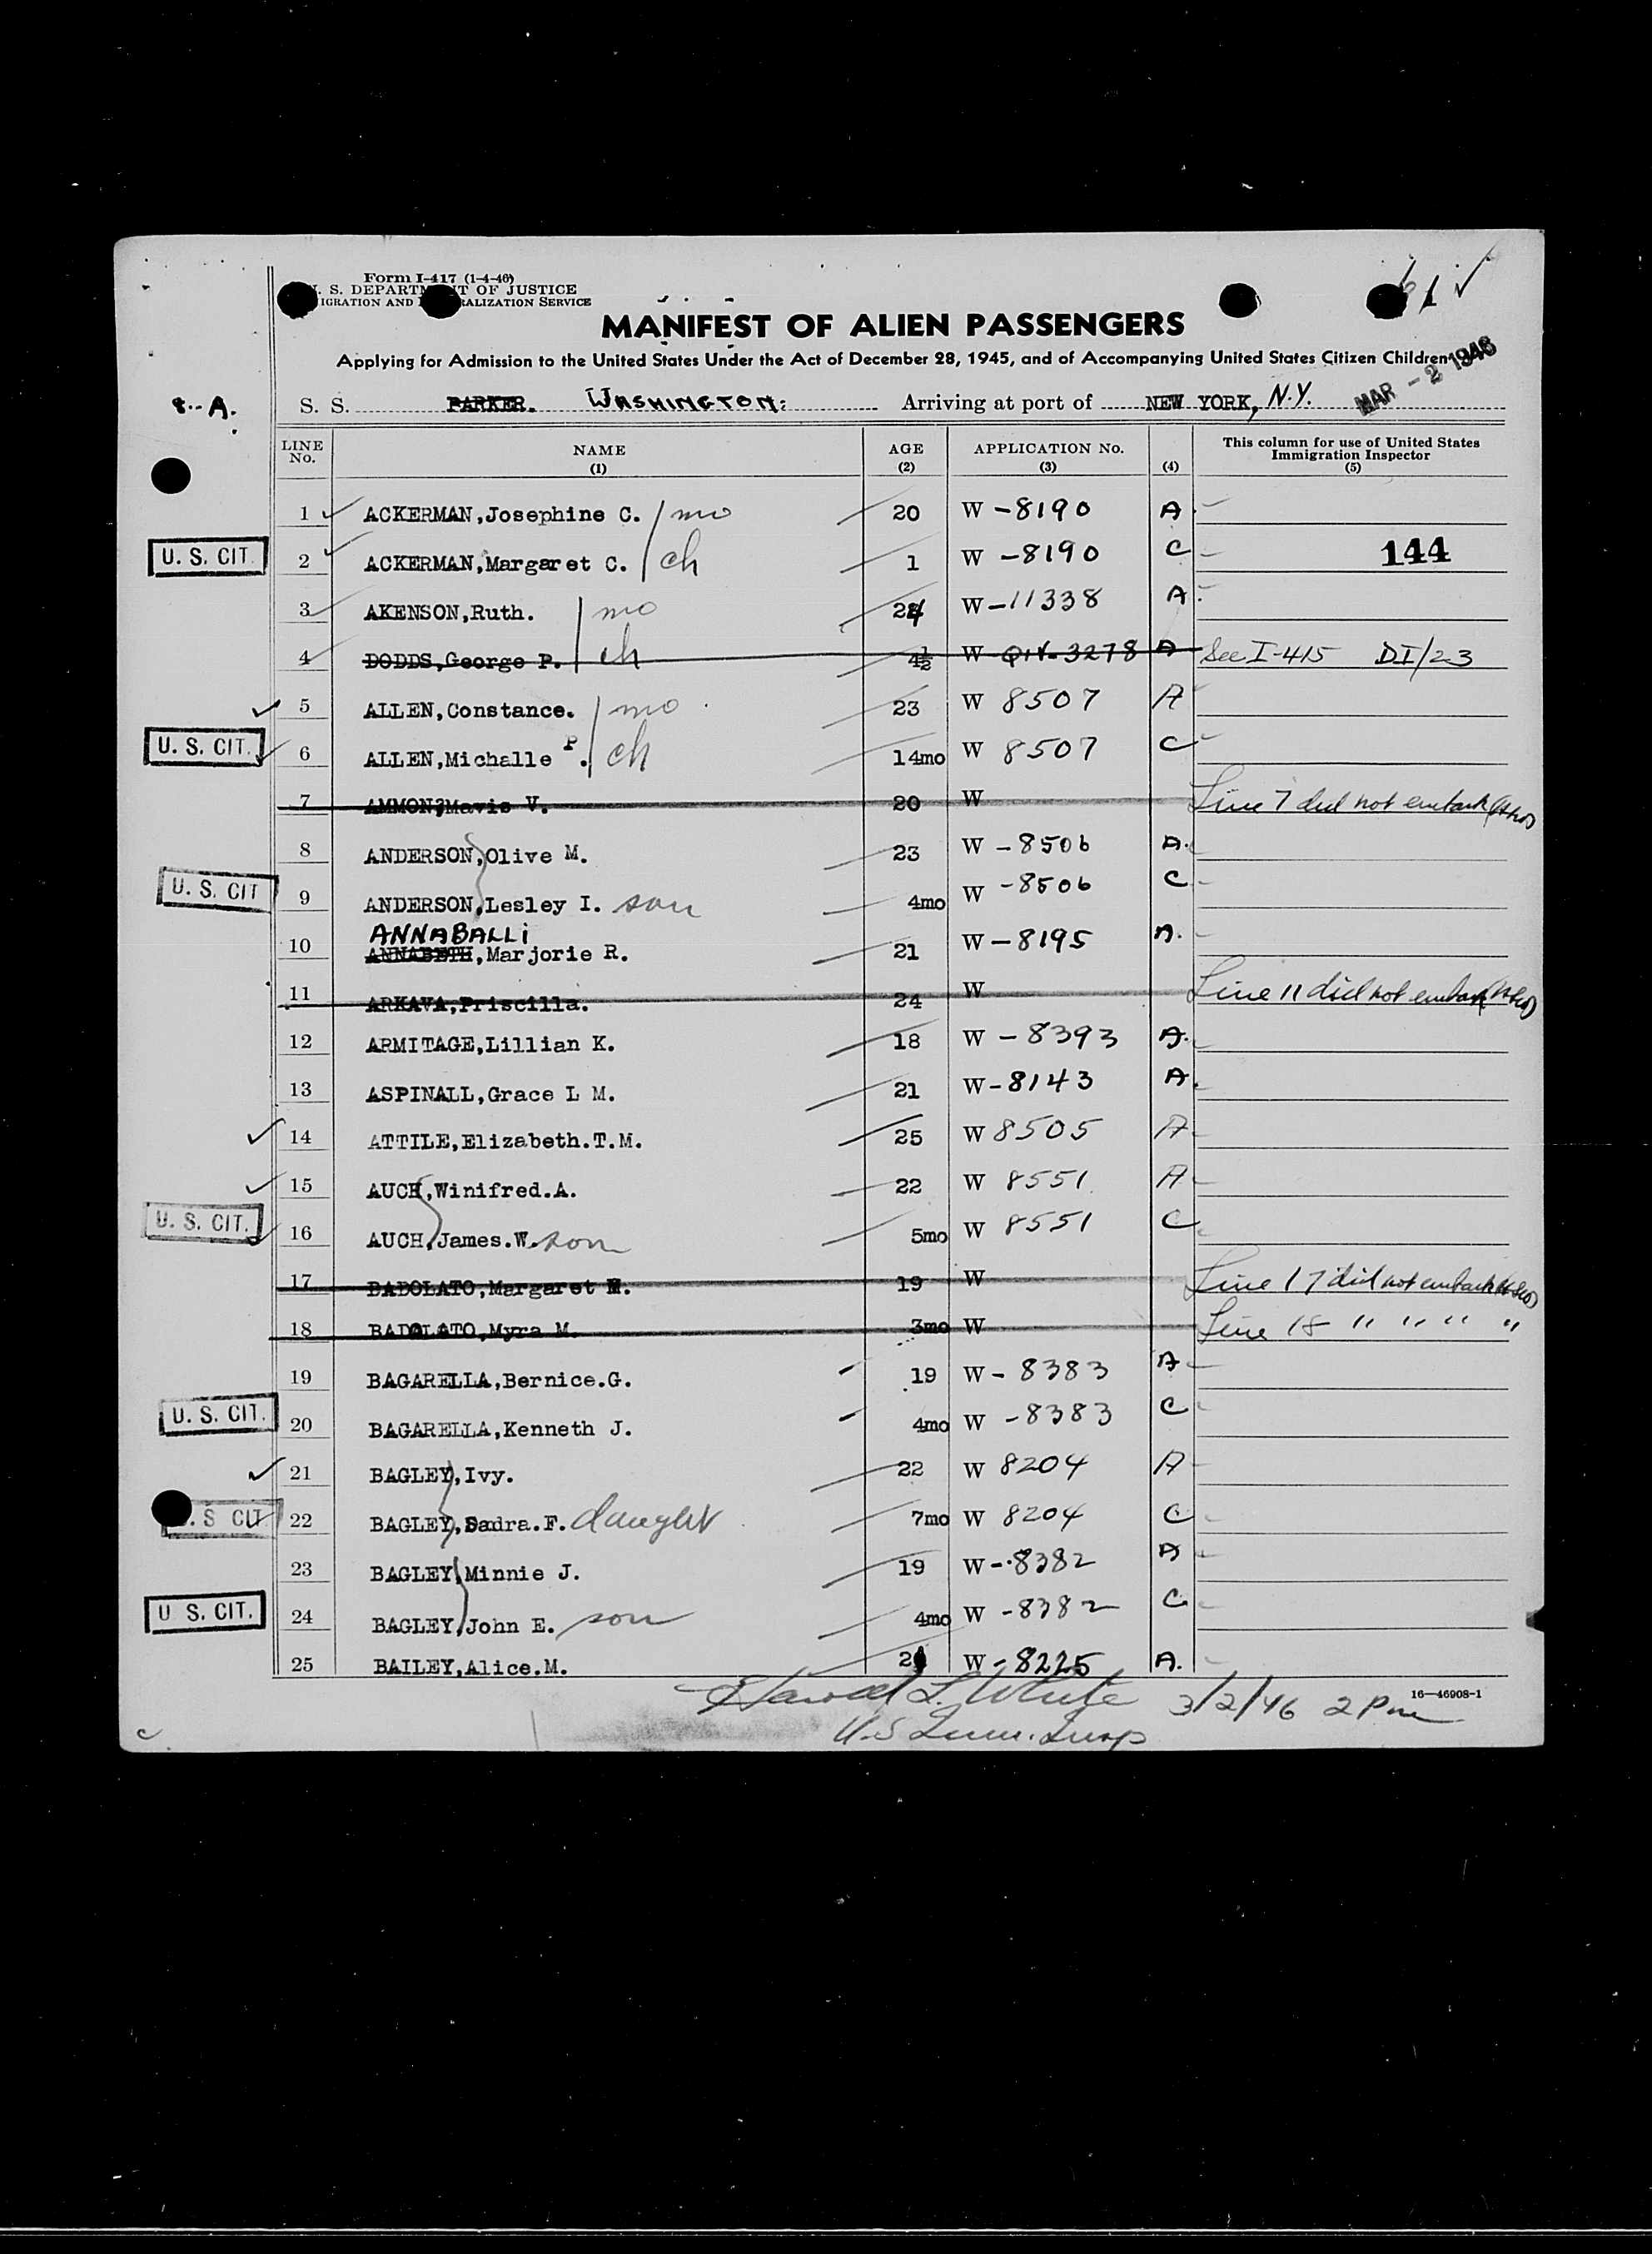 Form I-417 (1-4-46)
U. S. DEPARTMENT OF JUSTICE
IGRATION AND RALIZATION SERVICE
MANIFEST OF ALIEN PASSENGERS
Applying for Admission to the United States Under the Act of December 28, 1945, and of Accompanying United States Citizen Children
MAR - 2 1946
8--A. S. S. PARKER. WASHINGTON: Arriving at port of NEW YORK, N.Y.
LINE No. NAME (1) AGE (2) APPLICATION No. (3) (4) This column for use of United States Immigration Inspector (5)
1 ACKERMAN,Josephine C. mo 20 W -8190 A
U. S. CIT. 2 ACKERMAN,Margaret C. ch 1 W -8190 C 144
3 AKENSON,Ruth. mo 24 W-11338 A
4 DODDS,George P. ch 4½ W QIV-3278 A See I-415 DI/23
5 ALLEN,Constance. mo 23 W 8507 A
U. S. CIT. 6 ALLEN,Michalle P. ch 14mo W 8507 C
7 AMMON,Mavis V. 20 W Line 7 did not embark
8 ANDERSON,Olive M. 23 W -8506 A.
U. S. CIT 9 ANDERSON,Lesley I. son 4mo W -8506 C
ANNABALLI
10 ANNABETH,Marjorie R. 21 W-8195 A.
11 ARKAVA,Priscilla. 24 W Line 11 did not embark
12 ARMITAGE,Lillian K. 18 W -8393 A.
13 ASPINALL,Grace L M. 21 W-8143 A.
14 ATTILE,Elizabeth.T.M. 25 W 8505 A
15 AUCH,Winifred.A. 22 W 8551 A
U. S. CIT. 16 AUCH,James.W. son 5mo W 8551 C
17 BADOLATO,Margaret M. 19 W Line 17 did not embark
18 BADOLATO,Myra M. 3mo W Line 18 " " " "
19 BAGARELLA,Bernice.G. 19 W- 8383 A
U. S. CIT. 20 BAGARELLA,Kenneth J. 4mo W -8383 C
21 BAGLEY,Ivy. 22 W 8204 A
. S CIT 22 BAGLEY,Sadra.F. daught 7mo W 8204 C
23 BAGLEY,Minnie J. 19 W-8382 A
U S. CIT. 24 BAGLEY,John E. son 4mo W -8382 C
25 BAILEY,Alice.M. W-8225 A.
Harold L. White 3/2/46 2 Pm 16—46908-1
U.S Imm. Insp